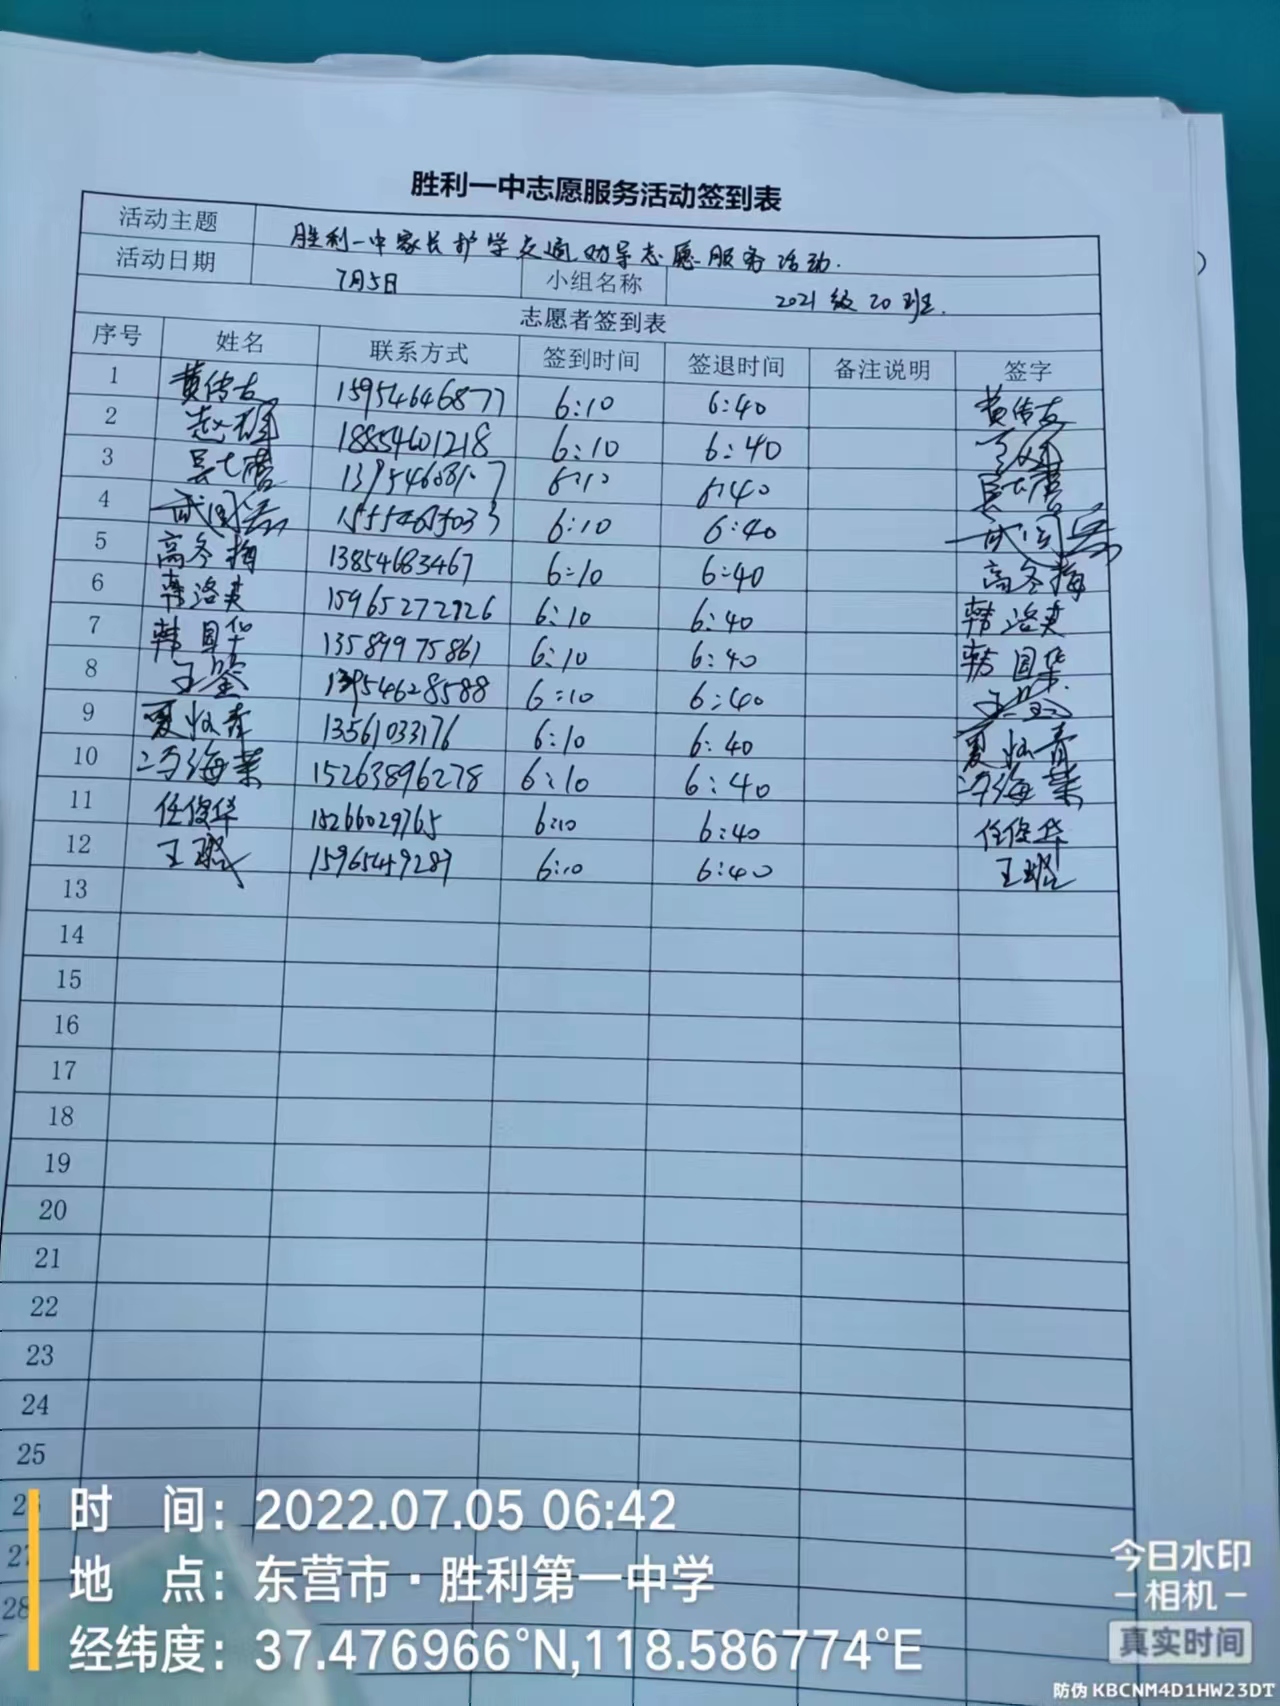 胜利一中志愿服务活动签到表
活动主题 胜利一中家长护学交通劝导志愿服务活动.
活动日期 7月5日 小组名称 2021级20班.
志愿者签到表
序号 姓名 联系方式 签到时间 签退时间 备注说明 签字
1 黄传友 15954646877 6:10 6:40 黄传友
2 赵 18854601218 6:10 6:40
3 吴 6:10 6:40 吴
4 武国 15554615033 6:10 6:40 武国
5 高冬梅 13854683467 6:10 6:40 高冬梅
6 韩洛英 15965272926 6:10 6:40 韩洛英
7 韩国华 13589975861 6:10 6:40 韩国华
8 王鉴 13954628588 6:10 6:40
9 夏 青 13561033176 6:10 6:40 夏 青
10 冯海荣 15263896278 6:10 6:40 冯海荣
11 任俊华 15266029765 6:10 6:40 任俊华
12 王 6:10 6:40 王
13
14
15
16
17
18
19
20
21
22
23
24
25
26
27
28
时 间：2022.07.05 06:42
地 点：东营市·胜利第一中学
经纬度：37.476966°N,118.586774°E
今日水印
-相机-
真实时间
防伪 KBCNM4D1HW23DT